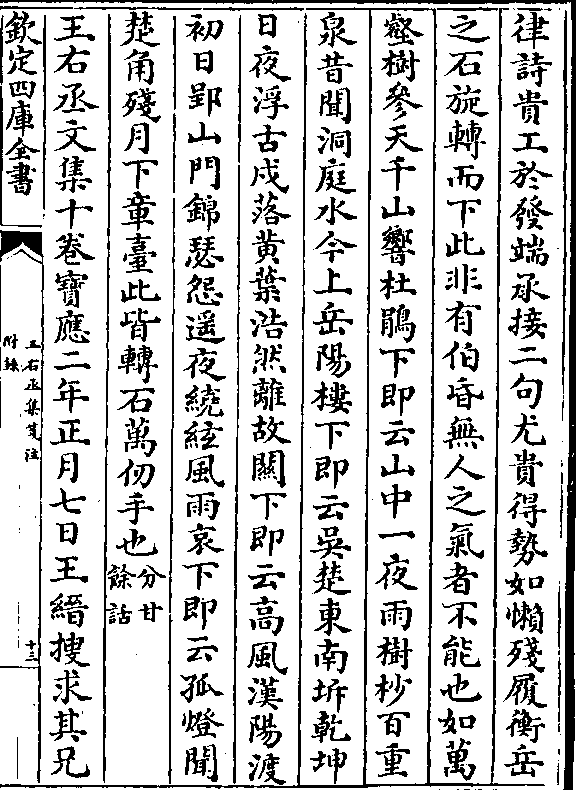 律詩貴工於發端承接二句尤貴得勢如懶殘履衡岳
之石旋轉而下此非有伯昏無人之氣者不能也如萬
壑樹參天千山響杜鵑下即云山中一夜雨樹杪百重
泉昔聞洞庭水今上岳陽樓下即云吳楚東南坼乾坤
日夜浮古戍落黄葉浩然離故關下即云高風漢陽渡
初日郢山門錦瑟怨遥夜繞絃風雨哀下即云孤燈聞
楚角殘月下章臺此皆轉石萬仞手也分甘餘話
王右丞文集十卷寶應二年正月七日王縉搜求其兄
欽定四庫全書
王右丞集箋注
附錄
十三